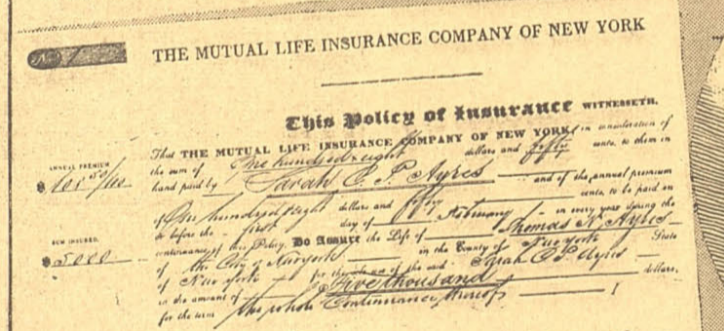 No 1
THE MUTUAL LIFE INSURANCE COMPANY OF NEW YORK
This Policy of Insurance WITNESSETH.
ANNUAL PREMIUM
$ 108 50/100
That THE MUTUAL LIFE INSURANCE COMPANY OF NEW YORK, in consideration of
the sum of One hundred eight dollars and fifty cents, to them in
hand paid by Sarah C. P. Ayres and of the annual premium
of One hundred eight dollars and fifty cents, to be paid on
or before the first day of February in every year during the
continuance of this Policy, Do Assure the Life of Thomas N. Ayres
SUM INSURED.
$ 5000
of the City of New york in the County of New York State
of New york for the sole use of the said Sarah C. P. Ayres
in the amount of Five thousand dollars,
for the term the whole Continuance thereof